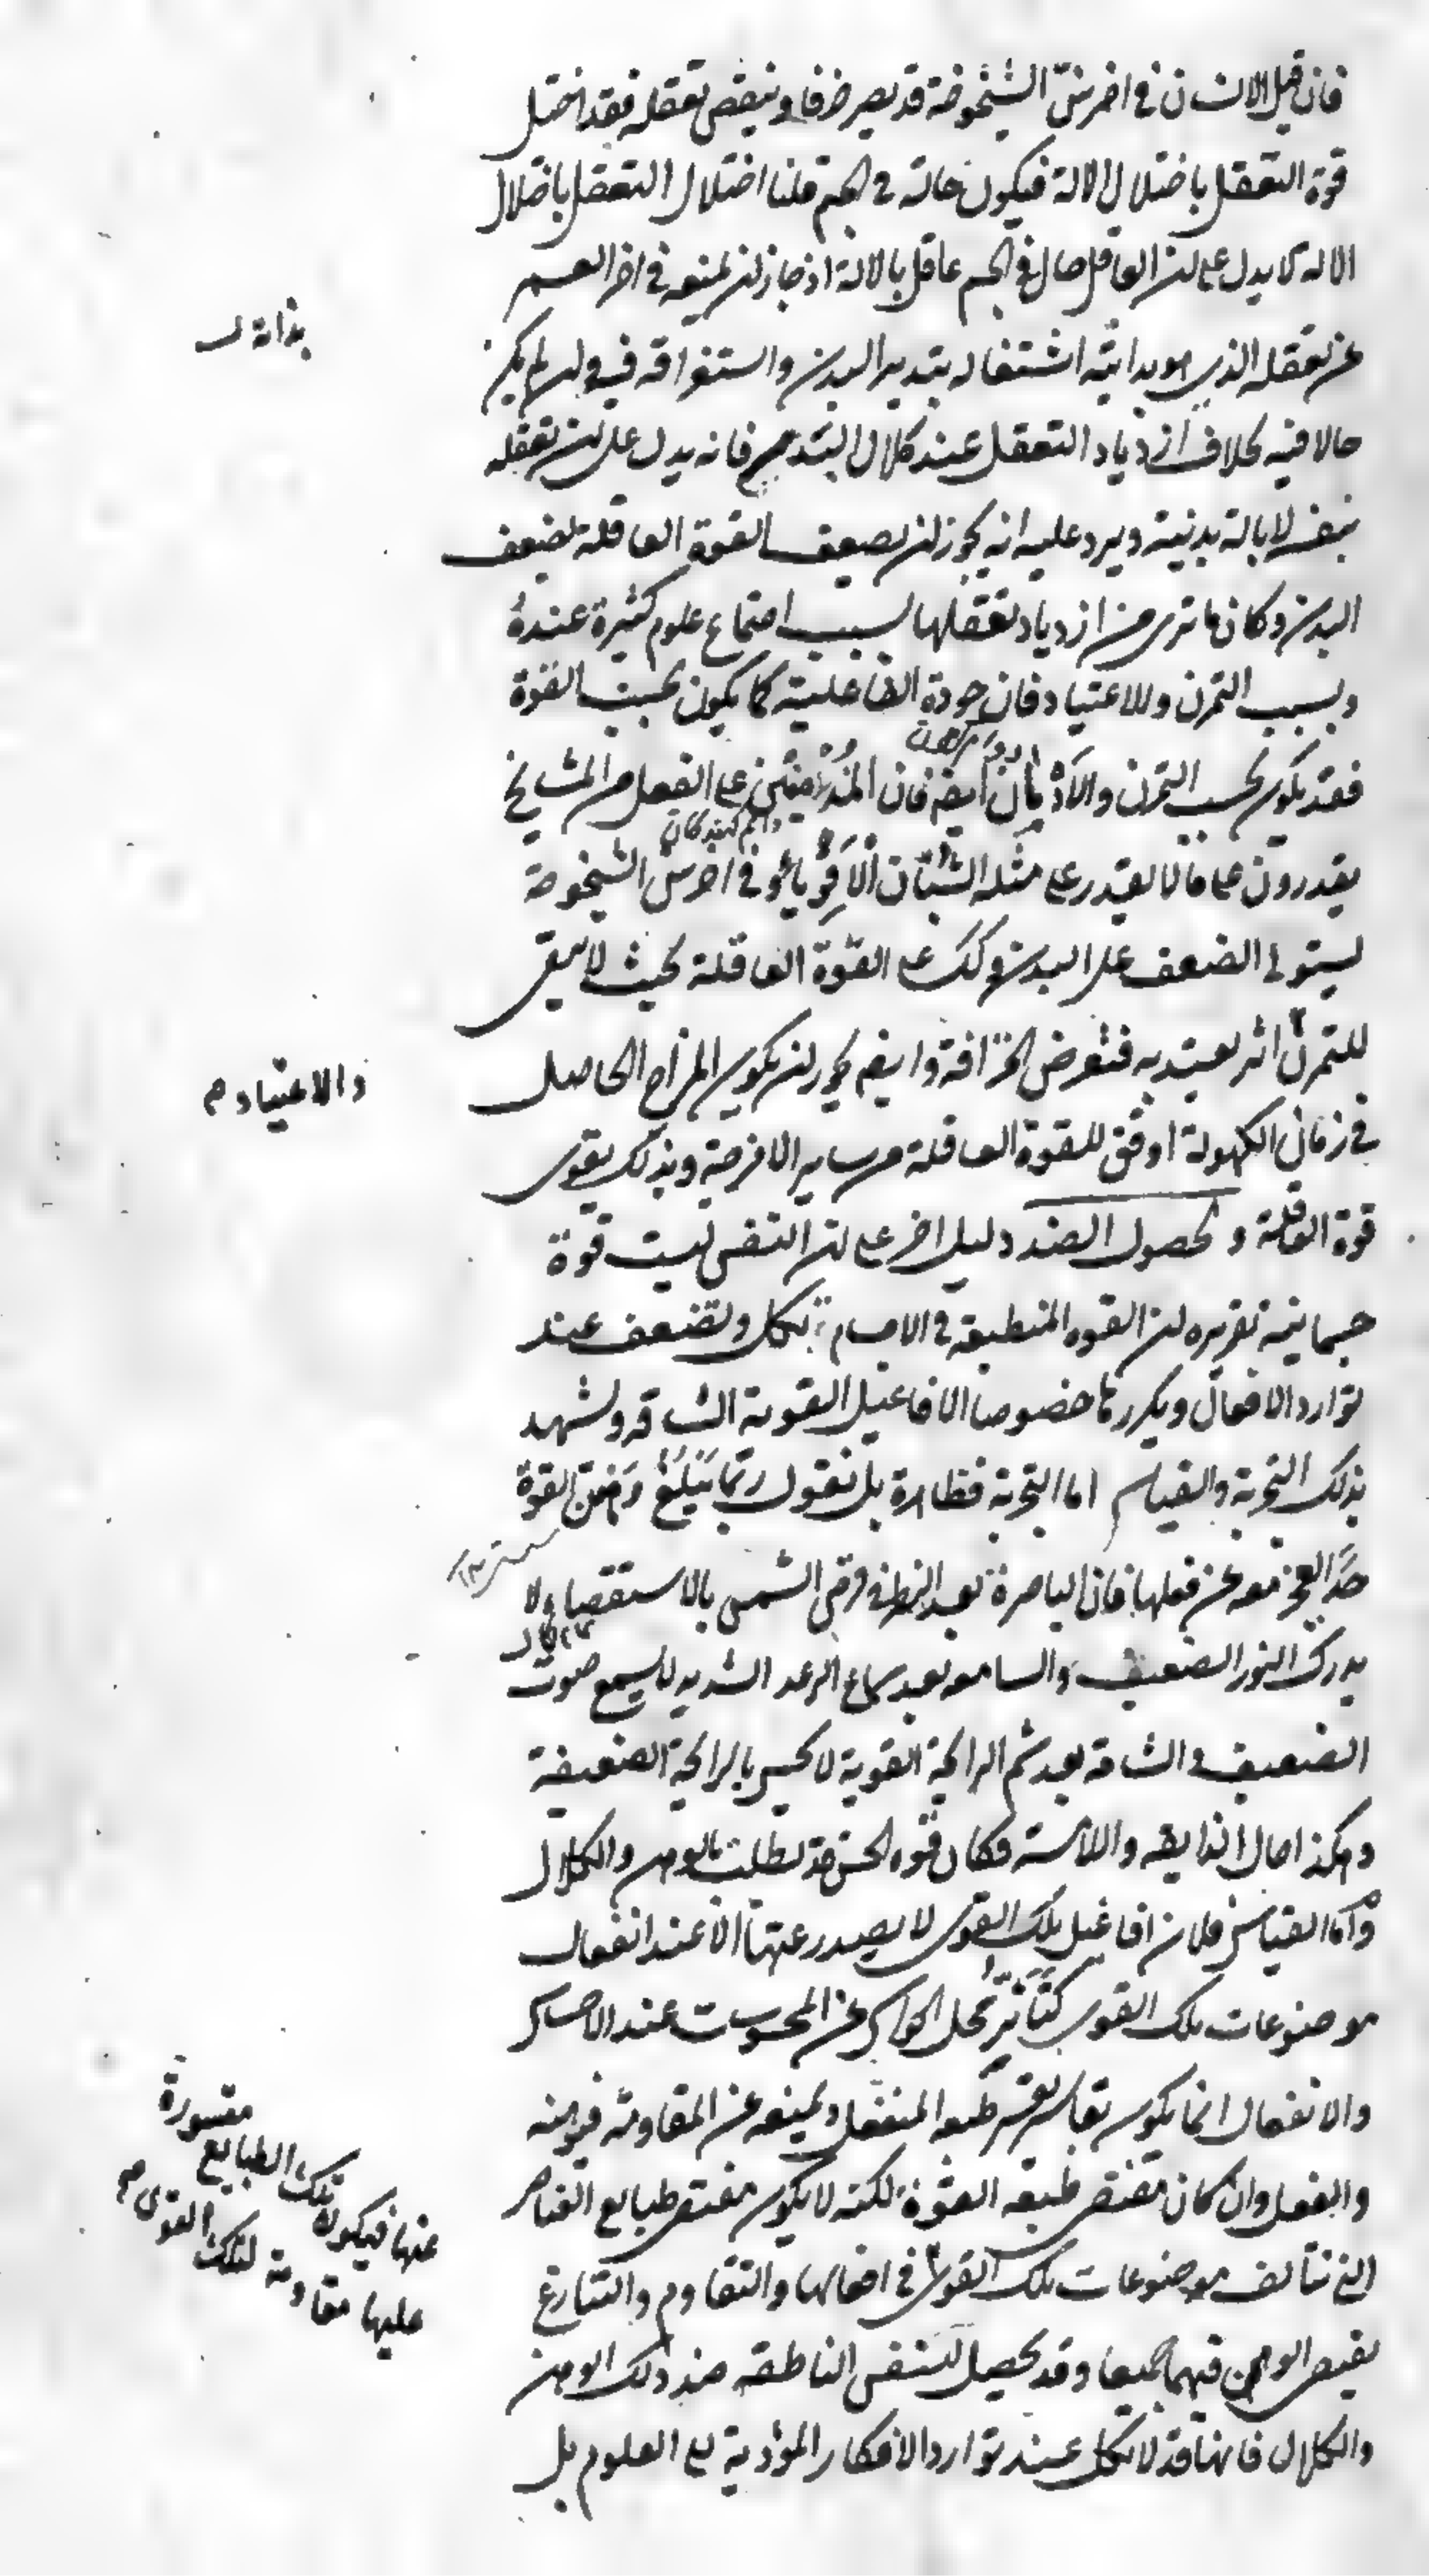 فان قيل الانسان في اخر سن الشيخوخة قد يصير خرفا وينقص تعقله فقد اختل
قوة التعقل باختلال الالة فيكون حالة في الجسم قلنا اختلال التعقل باختلال
الالة لا يدل على ان العاقل حال في الجسم عاقل بالالة اذ جاز ان يمنعه في اخر العمر
بذاته
عن تعقله الذي هو بذاته اشتغاله بتدبير البدن واستغراقه فيه وان لم يكن
حالا فيه بخلاف ازدياد التعقل عند كلال البدن فانه يدل على ان تعقله
بنفسه لا بالة بدنية ويرد عليه انه يجوز ان يضعف القوة العاقلة لضعف
البدن وكان ما ترى من ازدياد تعقلها بسبب اجتماع علوم كثيرة عنده
وبسبب التمرن والاعتياد فان جودة الفاعلية كما يكون بحسب القوة
فقد يكون بحسب التمرن والادمان ايضا فان المدمنين على الفعل من المشايخ
يقدرون على ما لا يقدر على مثله الشبان الاقوياء وفي اخر سن الشيخوخة
يستولى الضعف على البدن وكذلك على القوة العاقلة بحيث لا يبقى
للتمرن اثر يعتد به فتعرض الخرافة وايضا يجوز ان يكون المزاج الحاصل
والاعتياد
في زمان الكهولة اوفق للقوة العاقلة من ساير الامزجة وبذلك يقوى
قوة العاقلة و لحصول الضد دليل اخر على ان النفس ليست قوة
جسمانية تقريره ان القوه المنطبعة في الاجسام تكل وتضعف عند
توارد الافعال وتكررها خصوصا الافاعيل القوية الشاقة ويشهد
بذلك التجربة والقياس اما التجربة فظاهرة بل نقول ربما يبلغ وهن القوة
حد العجز معه عن فعلها فان الباصرة بعد النظر في قرص الشمس بالاستقصاء لا
يدرك النور الضعيف والسامعه بعد سماع الرعد الشديد لا يسمع صوت
الضعيف والشامة بعد شم الرايحة القوية لا تحس بالرايحة الضعيفة
وهكذا حال الذايقه واللامسة فكان قوه الحس قد بطلت بالوهن والكلال
واما القياس فلان افاعيل تلك القوى لا يصدر عنها الا عند انفعال
موضوعات تلك القوى كتأثر محل الحواس عن المحسوسات عند الاحساس
والانفعال انما يكون بقاسر يقسر طبيعة المنفعل ويمنعه عن المقاومة فيوهنه
والفعل وان كان مقتضى طبيعة القوة لكنه لا يكون مقتضى طبايع العناصر
التي تتألف موضوعات تلك القوى في افعالها والتقاوم والتنازع
عنها فيكون تلك الطبايع مقسورة
عليها مقاومة لتلك القوى
يقتضى الوهن فيهما جميعا وقد يحصل للنفس الناطقه ضد ذلك الوهن
والكلال فانها قد لا تكل عند توارد الافكار المؤدية الى العلوم بل